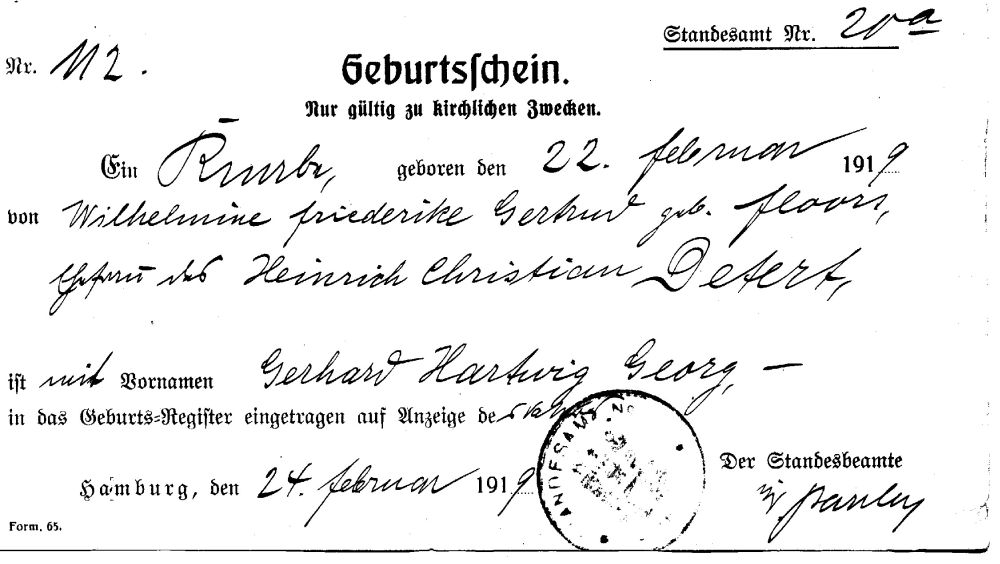 Standesamt Nr. 20a
Nr. 112.
Geburtsschein.
Nur gültig zu kirchlichen Zwecken.
Ein Knabe, geboren den 22. Februar 1919
von Wilhelmine Friederike Gertrud geb. Floors,
Ehefrau des Heinrich Christian Detert,
ist mit Vornamen Gerhard Hartwig Georg, —
in das Geburts-Register eingetragen auf Anzeige des
ANDESAMT
Der Standesbeamte
Hamburg, den 24. Februar 1919
Form. 65.